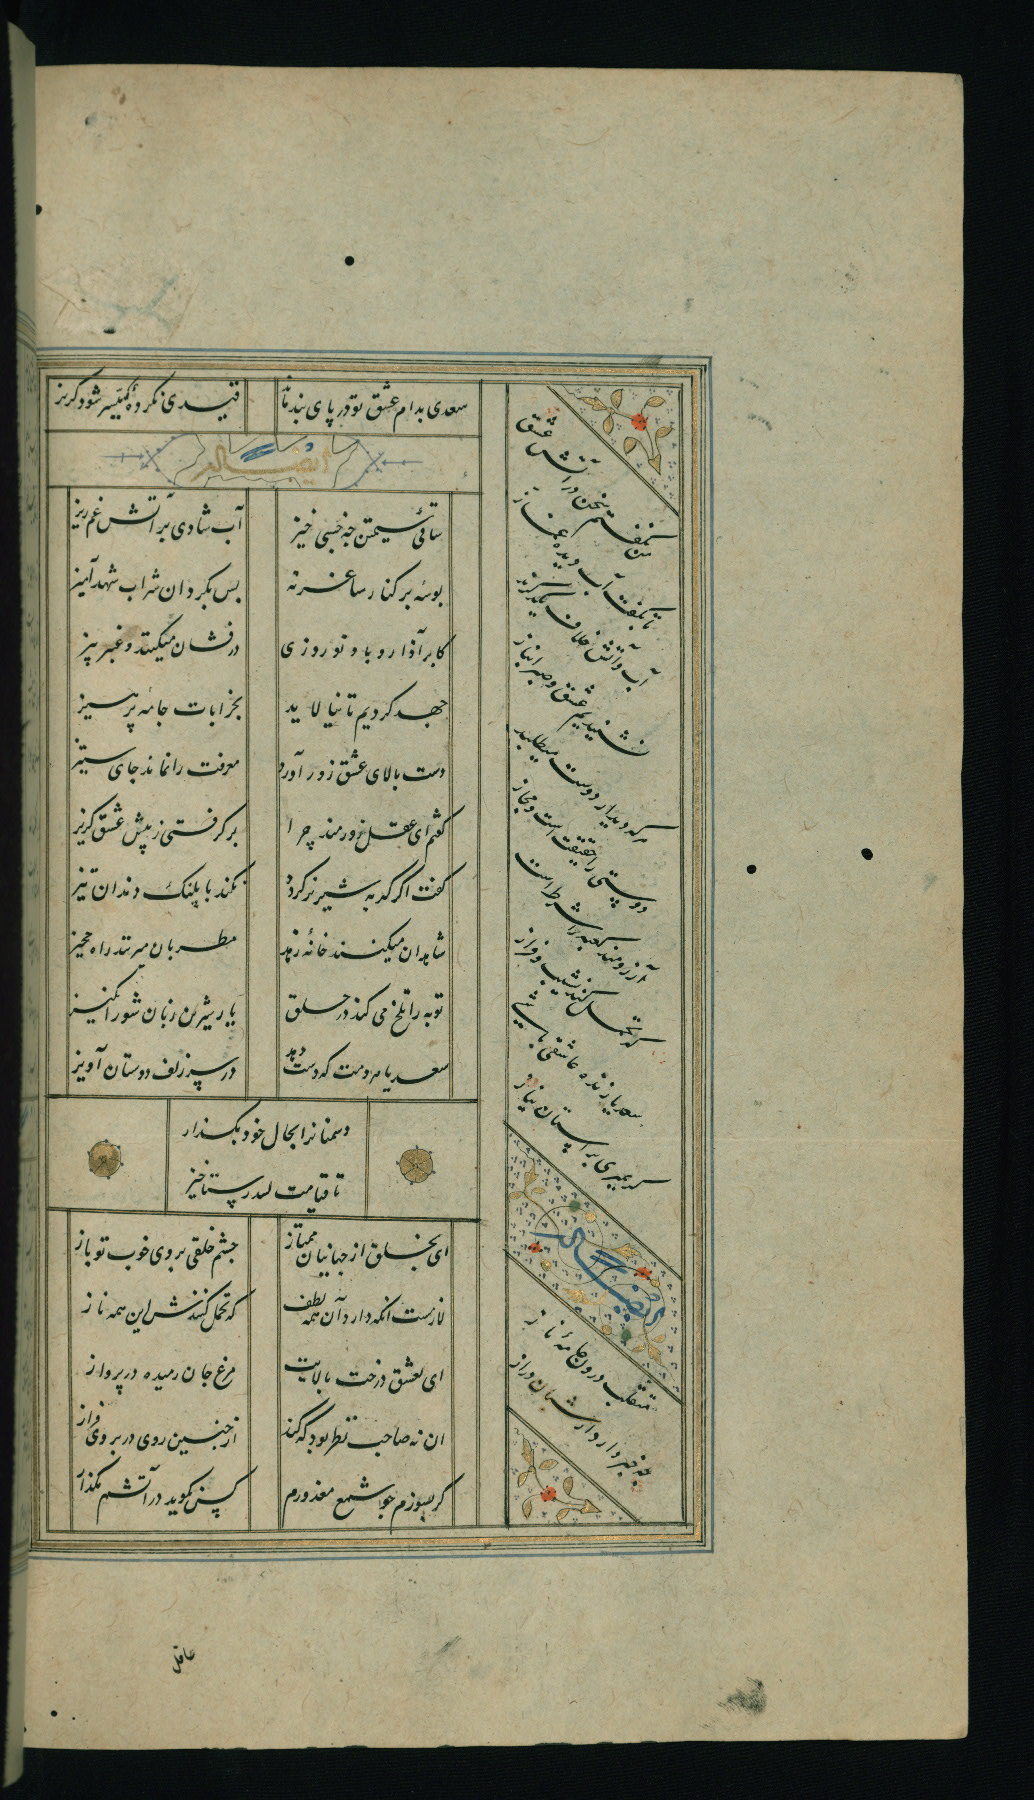 سعدی بدام عشق تو در پای بند ماند
قیدی نکرده کمیسر شود کریز
ایضا له
ساقی سیمتن چه خسبی خیز
آب شادی بر آتش غم ریز
بوسهٔ بر کنار ساغر نه
پس بگردان شراب شهد آمیز
کابر آذار و باد نوروزی
درفشان میکند و عنبر بیز
جهد کردیم تا نیالاید
بخرابات جامه پرهیز
دست بالای عشق زور آورد
معرفت را نماند جای ستیز
گفتم ای عقل زورمند چرا
بر گرفتی ز پیش عشق کریز
گفت اگر گربه شیر نر گردد
نکند با پلنک دندان تیز
شاهدان میکنند خانهٔ زهد
مطربان میزنند راه حجیز
توبه را تلخ می کند در حلق
یار شیرین زبان شورانکیز
سعدیا هر دمت که دست دهد
در سر زلف دوستان آویز
دشمنانرا بحال خود بگذار
تا قیامت کنند رستاخیز
ای بخلق از جهانیان ممتاز
چشم خلقی بروی خوب تو باز
لازمست انکه دارد آن همه لطف
که تحمل کنندش این همه ناز
ای بعشق درخت بالایت
مرغ جان رمیده در پرواز
ان نه صاحب نظر بود که کند
از چنین روی در بروی فراز
گر بسوزم چو شمع معذورم
کس نگوید در آتشم مگذار
من نگفتم سخن در آتش عشق
تا بگفت آب دیدهٔ غماز
آب و آتش خلاف یکدگرند
نشنیدیم عشق و صبر انباز
هر که دیدار دوست میطلبد
دوستی را حقیقت است و مجاز
آرزومند کعبه را شرط است
که تحمل کند نشیب و فراز
سعدیا زنده عاشقی باشی
که بمیری بر آستان نیاز
ایضا له
متقلب درون جامهٔ ناز
چه خبر دارد از شبان دراز
عاقل